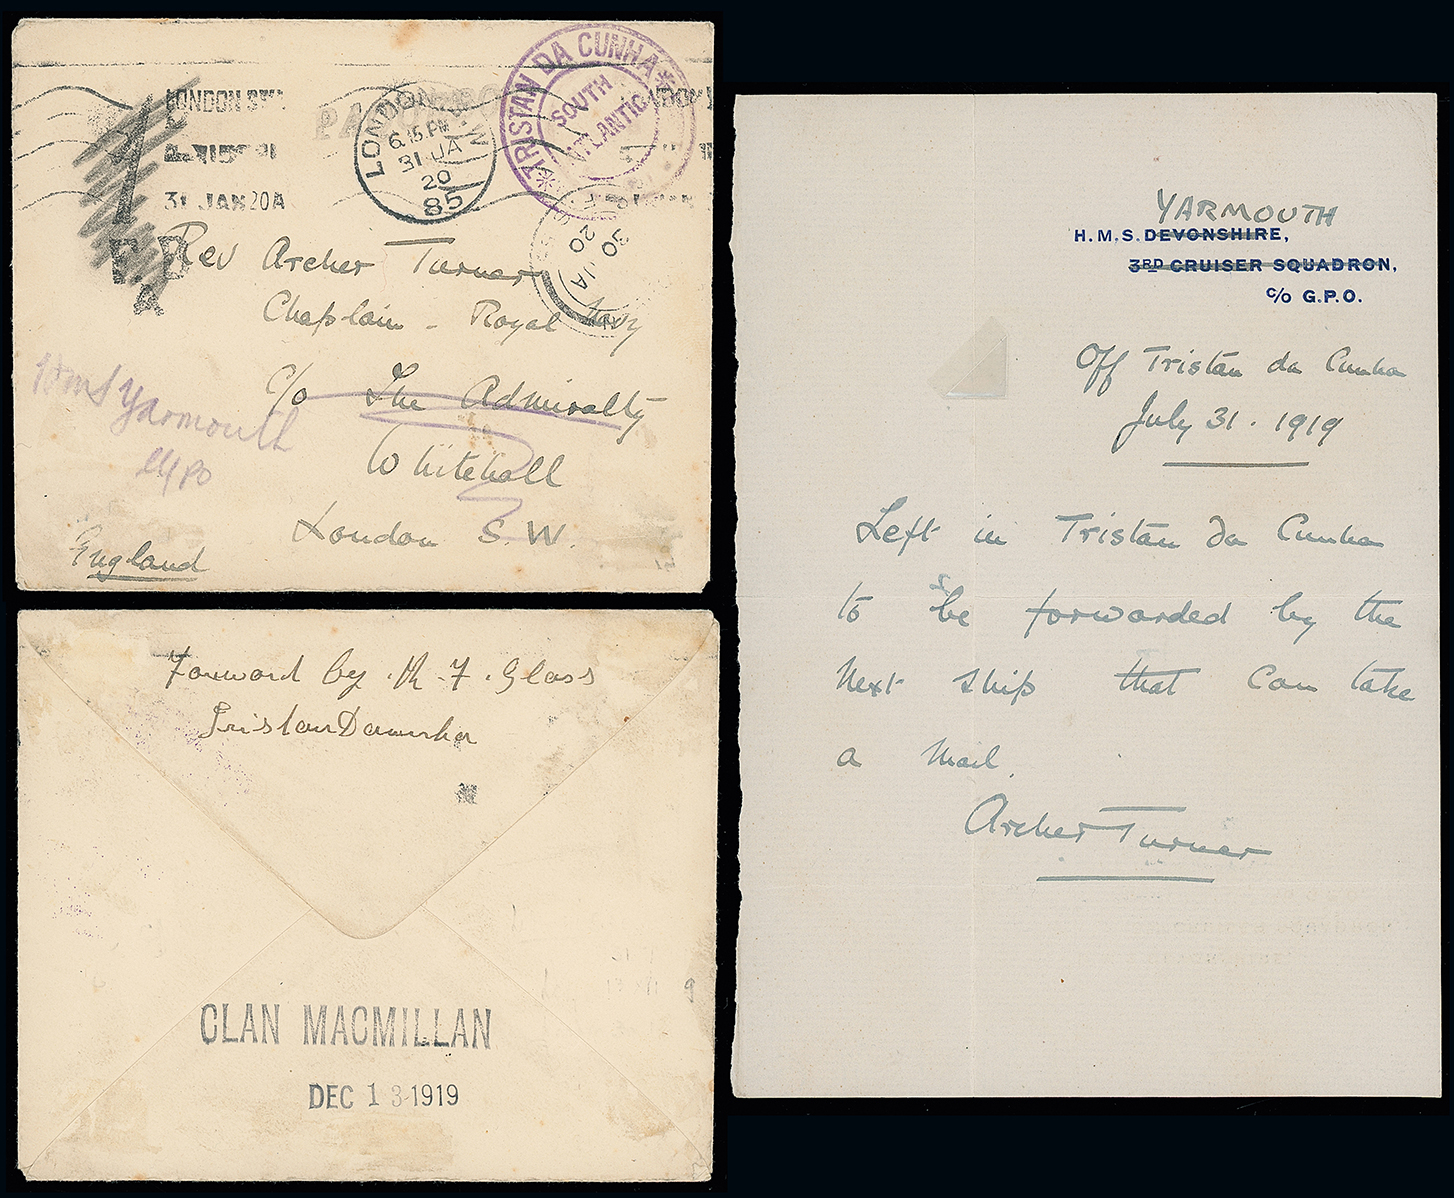 LONDON S.W.
31 JAN 20 A
PAQUEBO
LONDON. S.W.
6.15 PM
31 JA
20
85
* TRISTAN DA CUNHA *
SOUTH
ATLANTIC
30 JA
20
Rev Archer Turner,
Chaplain - Royal Navy
C/o The Admiralty
Whitehall
London S.W.
England
HMS Yarmouth
C/o GPO
Forward by . R . F . Glass
Tristan Dacunha
CLAN MACMILLAN
DEC 13 1919
YARMOUTH
H.M.S. DEVONSHIRE,
3RD CRUISER SQUADRON,
C/O G.P.O.
Off Tristan da Cunha
July 31 . 1919
Left in Tristan da Cunha
to be forwarded by the
next ship that can take
a mail.
Archer Turner